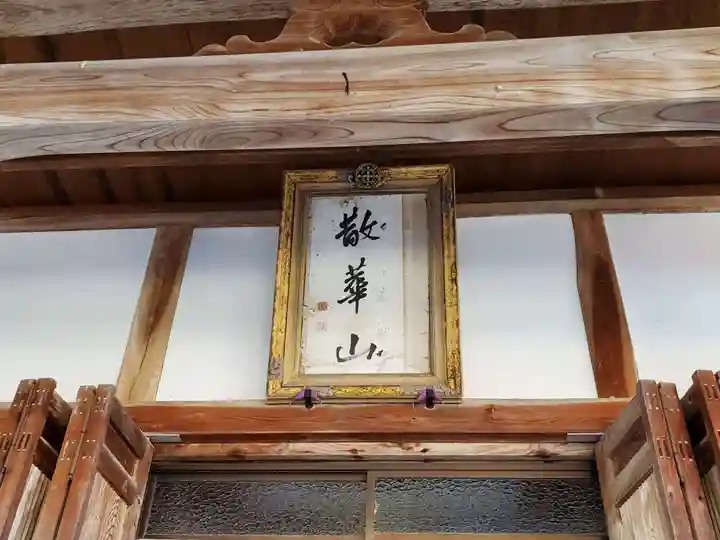 散華山